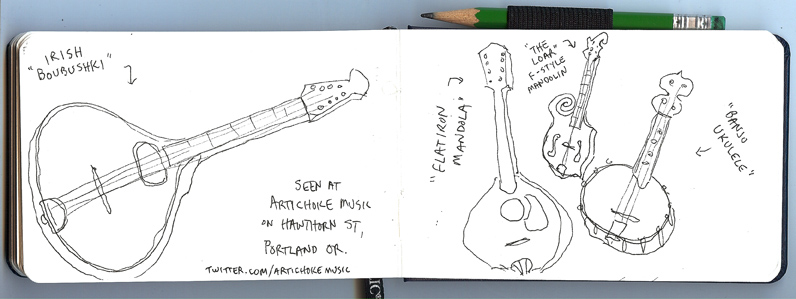 IRISH
"BOUBUSHKI"
SEEN AT
ARTICHOKE MUSIC
ON HAWTHORN ST,
PORTLAND OR.
TWITTER.COM/ARTICHOKEMUSIC
"FLATIRON
MANDOLA"
"THE
LOAR"
F-STYLE
MANDOLIN
"BANJO
UKULELE"